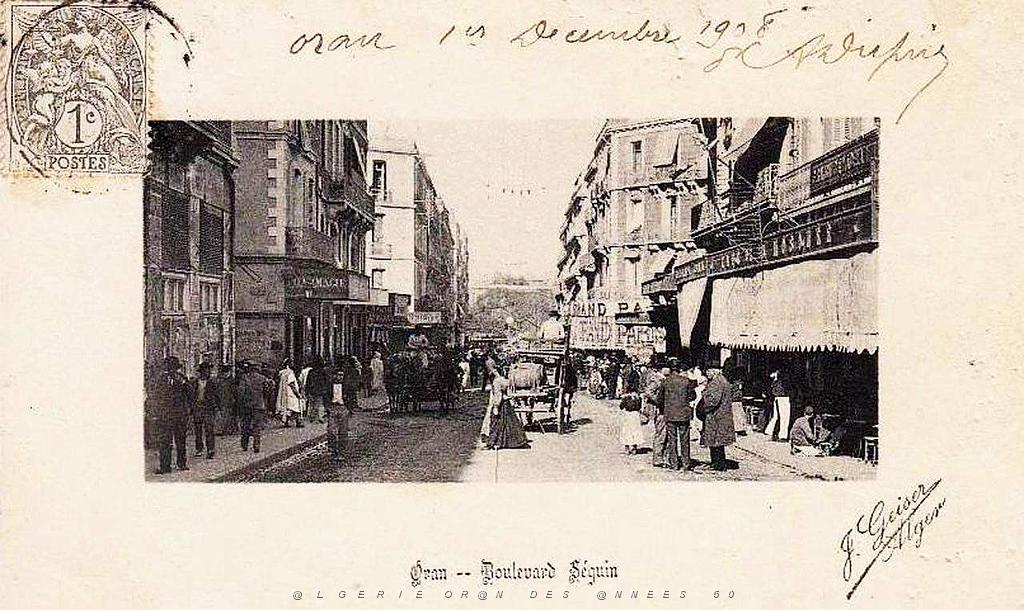 Oran 1er Decembre 1908
1c
POSTES
GRAND BA
J. Geiser
Alger
Oran -- Boulevard Séguin
@LGERIE OR@N DES @NNEES 50